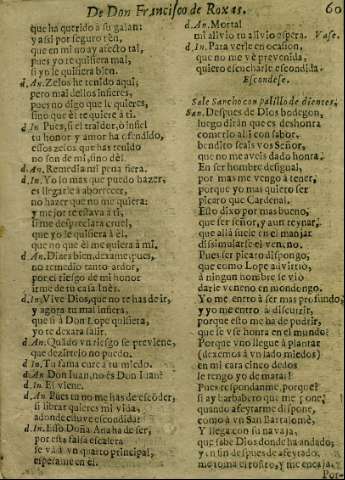 De Don Francisco de Roxas. 60
que ha querido a su galan:
y assi por seguro ten,
que en mi no ay afecto tal,
pues yo te quisiera mal,
si yn le quisiera bien.
d. An. Zelos he tenido aqui,
pero mal dellos infieres,
pues no digo que le quieres,
sino que èl te quiere à ti.
d. In. Pues, si el traidor, ò infiel
tu honor y amor ha ofendido,
essos zelos que has tenido
no son de mi, sino dèl.
d. An. Remedia mi pena fiera.
d. In. Yo lo mas que puedo hazer,
es llegarle à aborrecer,
no hazer que no me quiera:
y mejor te estava à ti,
si me despreciara cruel,
que yo le quisiera à èl,
que no que èl me quiera à mi.
d. An. Dizes bien, dexame pues,
no remedio tanto ardor,
por el riesgo de mi honor
irme de tu casa Inès.
d. In. Vive Dios, que no te has de ir,
y agora tu mal infiera,
que si à Don Lope quisiera,
yo te dexara salir.
d. An. Quãdo vn riesgo se previene,
que dezirtelo no puedo.
d. In. Tu fama cure à tu miedo.
d. An. Don Iuan, no ès Don Iuan?
d. In. El viene.
d. An. Pues tu no me has de escõder,
si librar quieres mi vida,
adonde estuve escondida?
d. In. Essa Doña Ana ha de ser,
por esta falsa escalera
se và à vn quarto principal,
esperame en el.
d. An. Mortal
mi alivio tu alivio espera. Vase.
d. In. Para verle en ocasion,
que no me vè prevenida,
quiero escucharle escondida.
Escondese.
Sale Sancho con palillo de dientes.
San. Despues de Dios bodegon,
luego diràn que es deshonra
comerlo alli con sabor,
bendito seais vos Señor,
que no me aveis dado honra.
En ser hombre desigual,
por mas me vengo à tener,
porque yo mas quiero ser
picaro que Cardenal.
Esto dixo por mas bueno,
que ser señor, y aun reynar,
que allà suele en el manjar
dissimularse el veneno.
Pues ser picaro dispongo,
que como Lope advirtiò,
à ningun hombre se viò
darle veneno en mondongo.
Yo me entro à ser mas profundo,
y yo me entro à discurrir,
porque esto me ha de pudrir,
que se vse honra en el mundo?
Porque vno llegue à plantar
(dexemos à vn lado miedos)
en mi cara cinco dedos
le tengo yo de matar?
Pues respondanme, porquè?
si ay barbabero que me pone,
quando afeytarme dispone,
como à vn San Bartolomè,
Y llega con su navaja,
que sabe Dios donde ha andado;
y en fin despues de afeytado,
me toma el rostro, y me encaja,
Por-